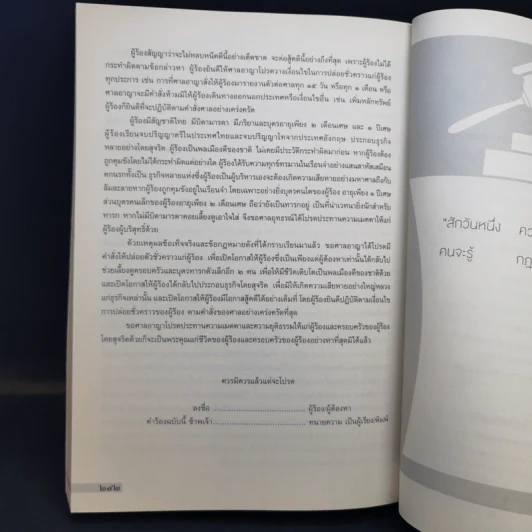 ผู้ร้องสัญญาว่าจะไม่หลบหนีคดีนี้อย่างเด็ดขาด จะต่อสู้คดีนี้อย่างถึงที่สุด เพราะผู้ร้องไม่ได้
กระทำผิดตามข้อกล่าวหา ผู้ร้องยินดีให้ศาลอาญาโปรดวางเงื่อนไขในการปล่อยชั่วคราวแก่ผู้ร้อง
ทุกประการ เช่น การที่ศาลอาญาสั่งให้ผู้ร้องมารายงานตัวต่อศาลทุก ๑๕ วัน หรือทุก ๑ เดือน หรือ
ศาลอาญาจะมีคำสั่งห้ามมิให้ผู้ร้องเดินทางออกนอกประเทศหรือเงื่อนไขอื่น เช่น เพิ่มหลักทรัพย์
ผู้ร้องก็ยินดีที่จะปฏิบัติตามคำสั่งศาลอย่างเคร่งครัด
ผู้ร้องมีสัญชาติไทย มีบิดามารดา มีภริยาและบุตรอายุเพียง ๒ เดือนเศษ และ ๑ ปีเศษ
ผู้ร้องเรียนจบปริญญาตรีในประเทศไทยและจบปริญญาโทจากประเทศอังกฤษ ประกอบธุรกิจ
หลายอย่างโดยสุจริต ผู้ร้องเป็นพลเมืองดีของชาติ ไม่เคยมีประวัติกระทำผิดมาก่อน หากผู้ร้องต้อง
ถูกคุมขังโดยไม่ได้กระทำผิดแต่อย่างใด ผู้ร้องได้รับความทุกข์ทรมานในเรือนจำอย่างแสนสาหัสเสมือน
ตกนรกทั้งเป็น ธุรกิจหลายแห่งซึ่งผู้ร้องเป็นผู้บริหารเองจะต้องเกิดความเสียหายอย่างมหาศาลถึงกับ
ล้มละลายหากผู้ร้องถูกคุมขังอยู่ในเรือนจำ โดยเฉพาะอย่างยิ่งบุตรคนโตของผู้ร้อง อายุเพียง ๑ ปีเศษ
ส่วนบุตรคนเล็กของผู้ร้องอายุเพียง ๒ เดือนเศษ ถือว่ายังเป็นทารกอยู่ เป็นที่น่าเวทนายิ่งนักสำหรับ
ทารก หากไม่มีบิดามารดาคอยเลี้ยงดูเอาใจใส่ จึงขอศาลอุทธรณ์ได้โปรดประทานความเมตตาให้แก่
ผู้ร้องผู้บริสุทธิ์ด้วย
ด้วยเหตุผลข้อเท็จจริงและข้อกฎหมายดังที่ได้กราบเรียนมาแล้ว ขอศาลอาญาได้โปรดมี
คำสั่งให้ปล่อยตัวชั่วคราวแก่ผู้ร้อง เพื่อเปิดโอกาสให้ผู้ร้องซึ่งเป็นเพียงแค่ผู้ต้องหาเท่านั้นได้กลับไป
ช่วยเลี้ยงดูครอบครัวและบุตรทารกตัวเล็กอีก ๒ คน เพื่อให้มีชีวิตเติบโตเป็นพลเมืองของชาติด้วย
และเปิดโอกาสให้ผู้ร้องได้กลับไปประกอบธุรกิจโดยสุจริต เพื่อมิให้เกิดความเสียหายอย่างใหญ่หลวง
แก่ธุรกิจเหล่านั้น และเปิดโอกาสให้ผู้ร้องมีโอกาสสู้คดีได้อย่างเต็มที่ โดยผู้ร้องยินดีปฏิบัติตามเงื่อนไข
การปล่อยชั่วคราวของผู้ร้อง ตามคำสั่งของศาลอย่างเคร่งครัดที่สุด
ขอศาลอาญาโปรดประทานความเมตตาและความยุติธรรมให้แก่ผู้ร้องและครอบครัวของผู้ร้อง
โดยสุจริตด้วยก็จะเป็นพระคุณแก่ชีวิตของผู้ร้องและครอบครัวของผู้ร้องอย่างหาที่สุดมิได้แล้ว
ควรมิควรแล้วแต่จะโปรด
ลงชื่อ ........................................ ผู้ร้อง/ผู้ต้องหา
คำร้องฉบับนี้ ข้าพเจ้า ........................................ ทนายความ เป็นผู้เรียง/พิมพ์
๒๕๒
"สักวันหนึ่ง
คนจะรู้